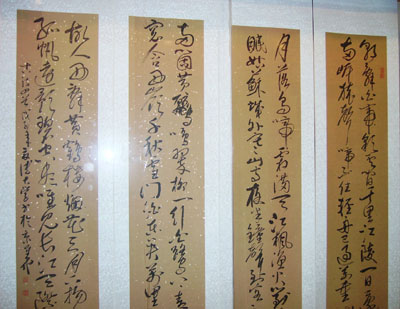 朝辭白帝彩雲間千里江陵一日還
兩岸猿聲啼不住輕舟已過萬重
月落烏啼霜滿天江楓漁火對愁
眠姑蘇城外寒山寺夜半鐘聲到客
兩個黃鸝鳴翠柳一行白鷺上青
窗含西嶺千秋雪門泊東吳萬里
故人西辭黃鶴樓煙花三月下揚
孤帆遠影碧空盡唯見長江天際